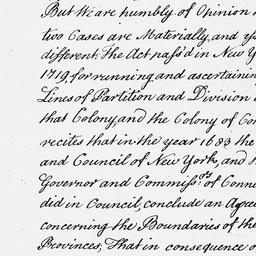 But We are humbly of Opinion
two Cases are Materially, and
different. The Act pass'd in New
1719, for running and ascertainin
Lines of Partition and Division
that Colony, and the Colony of Con
recites that in the year 1683 the
and Council of New York, and
Governor and Commissrs. of Conne
did in Council, conclude an Agre
concerning the Boundaries of the
Provinces, That in consequence o